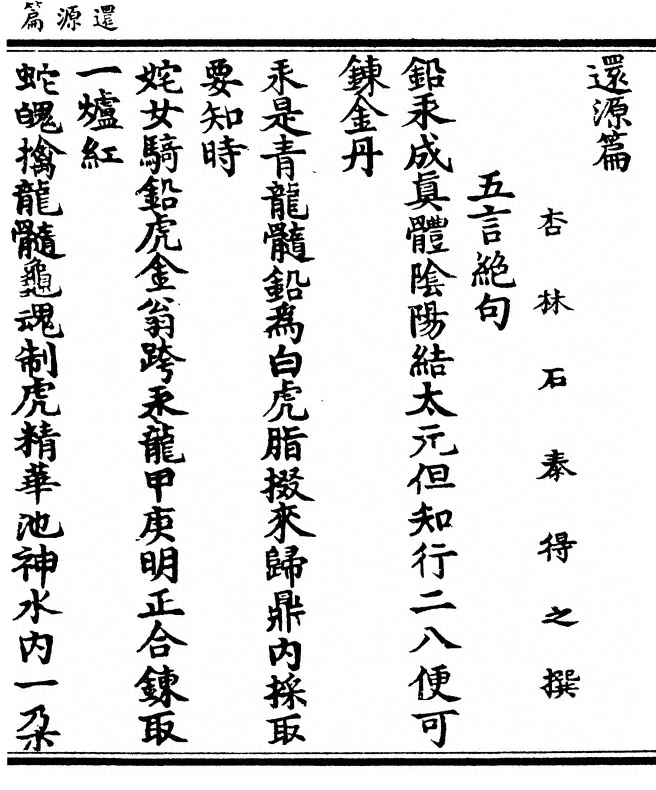 還源篇
還源篇
杏林石泰得之撰
五言絶句
鉛汞成眞體陰陽結太元但知行二八便可
鍊金丹
汞是青龍髓鉛爲白虎脂掇來歸鼎內採取
要知時
姹女騎鉛虎金翁跨汞龍甲庚明正合鍊取
一爐紅
蛇魄擒龍髓龜魂制虎精華池神水內一朶